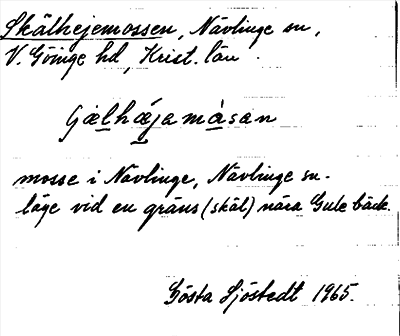 Skälhejemossen, Nävlinge sn,
V. Göinge hd, Krist. län.
Gælhæjemåsan
mosse i Nävlinge, Nävlinge sn.
läge vid en gräns (skäl) nära Gule bäck.
Gösta Sjöstedt 1965.